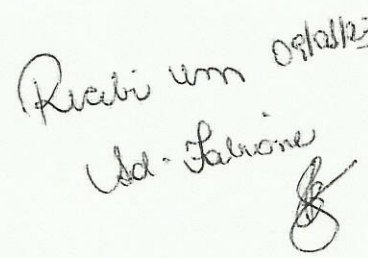 Recebi em 09/01/23
Sd. Fabiane